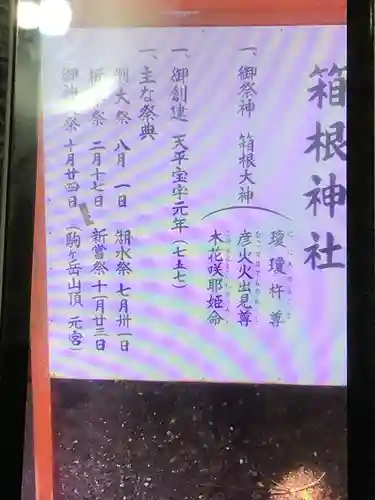 箱根神社
一、御祭神　箱根大神
瓊瓊杵尊
彦火火出見尊
木花咲耶姫命
一、御創建　天平宝字元年（七五七）
一、主な祭典
例大祭　八月　一日　湖水祭　七月卅一日
祈年祭　二月十七日　新嘗祭　十一月廿三日
御神火祭　十月廿四日（駒ヶ岳山頂　元宮）